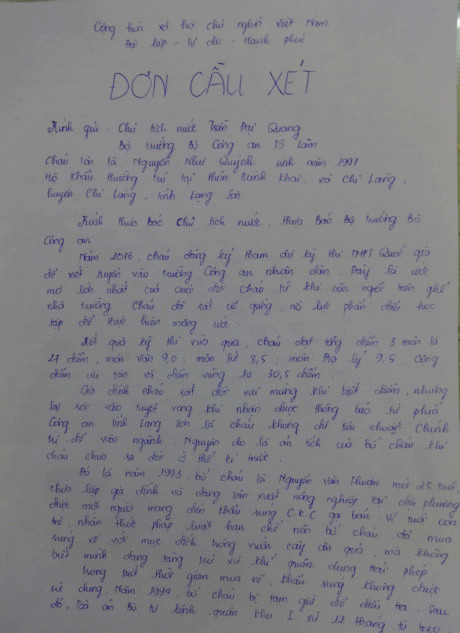 Cộng hòa xã hội chủ nghĩa Việt Nam
Độc lập - Tự do - Hạnh phúc
ĐƠN CẦU XÉT
Kính gửi: Chủ tịch nước Trần Đại Quang
Bộ trưởng Bộ Công an Tô Lâm
Cháu tên là Nguyễn Như Quỳnh sinh năm 1997
Hộ khẩu thường trú tại thôn Minh Khai, xã Chi Lăng,
huyện Chi Lăng, tỉnh Lạng Sơn
Kính thưa Bác Chủ tịch nước, thưa Bác Bộ trưởng Bộ
Công an
Năm 2016, cháu đăng ký tham dự kỳ thi THPT Quốc gia
để xét tuyển vào trường Công an nhân dân. Đây là ước
mơ lớn nhất của cuộc đời cháu từ khi còn ngồi trên ghế
nhà trường. Cháu đã rất cố gắng, nỗ lực phấn đấu học
tập để thực hiện mong ước.
Kết quả kỳ thi vừa qua, cháu đạt tổng điểm 3 môn là
27 điểm, môn văn 9,0; môn Sử 8,5; môn Địa lý 9,5. Cộng
điểm ưu tiên và điểm vùng là 30,5 điểm.
Gia đình cháu rất đỗi vui mừng khi biết điểm, nhưng
lại rơi vào tuyệt vọng khi nhận được thông báo từ phía
Công an tỉnh Lạng Sơn là cháu không đủ tiêu chuẩn Chính
trị để vào ngành. Nguyên do là án tích của bố cháu khi
cháu chưa ra đời ở thể kỉ trước.
Đó là năm 1993, bố cháu là Nguyễn Văn mới 25 tuổi,
chưa lập gia đình và đang sản xuất nông nghiệp tại địa phương
được một người mang đến khẩu súng C.K.C gạ bán. Vì tuổi còn
trẻ, nhận thức pháp luật hạn chế nên bố cháu đã mua
súng về với mục đích trông vườn cây ăn quả, mà không
biết mình đang tàng trữ vũ khí quân dụng trái phép.
Trong suốt thời gian mua về, khẩu súng không được
sử dụng. Năm 1994, bố cháu bị tạm giữ để điều tra. Sau
đó, Tòa án Bộ tư lệnh quân khu I xử 12 tháng tù treo